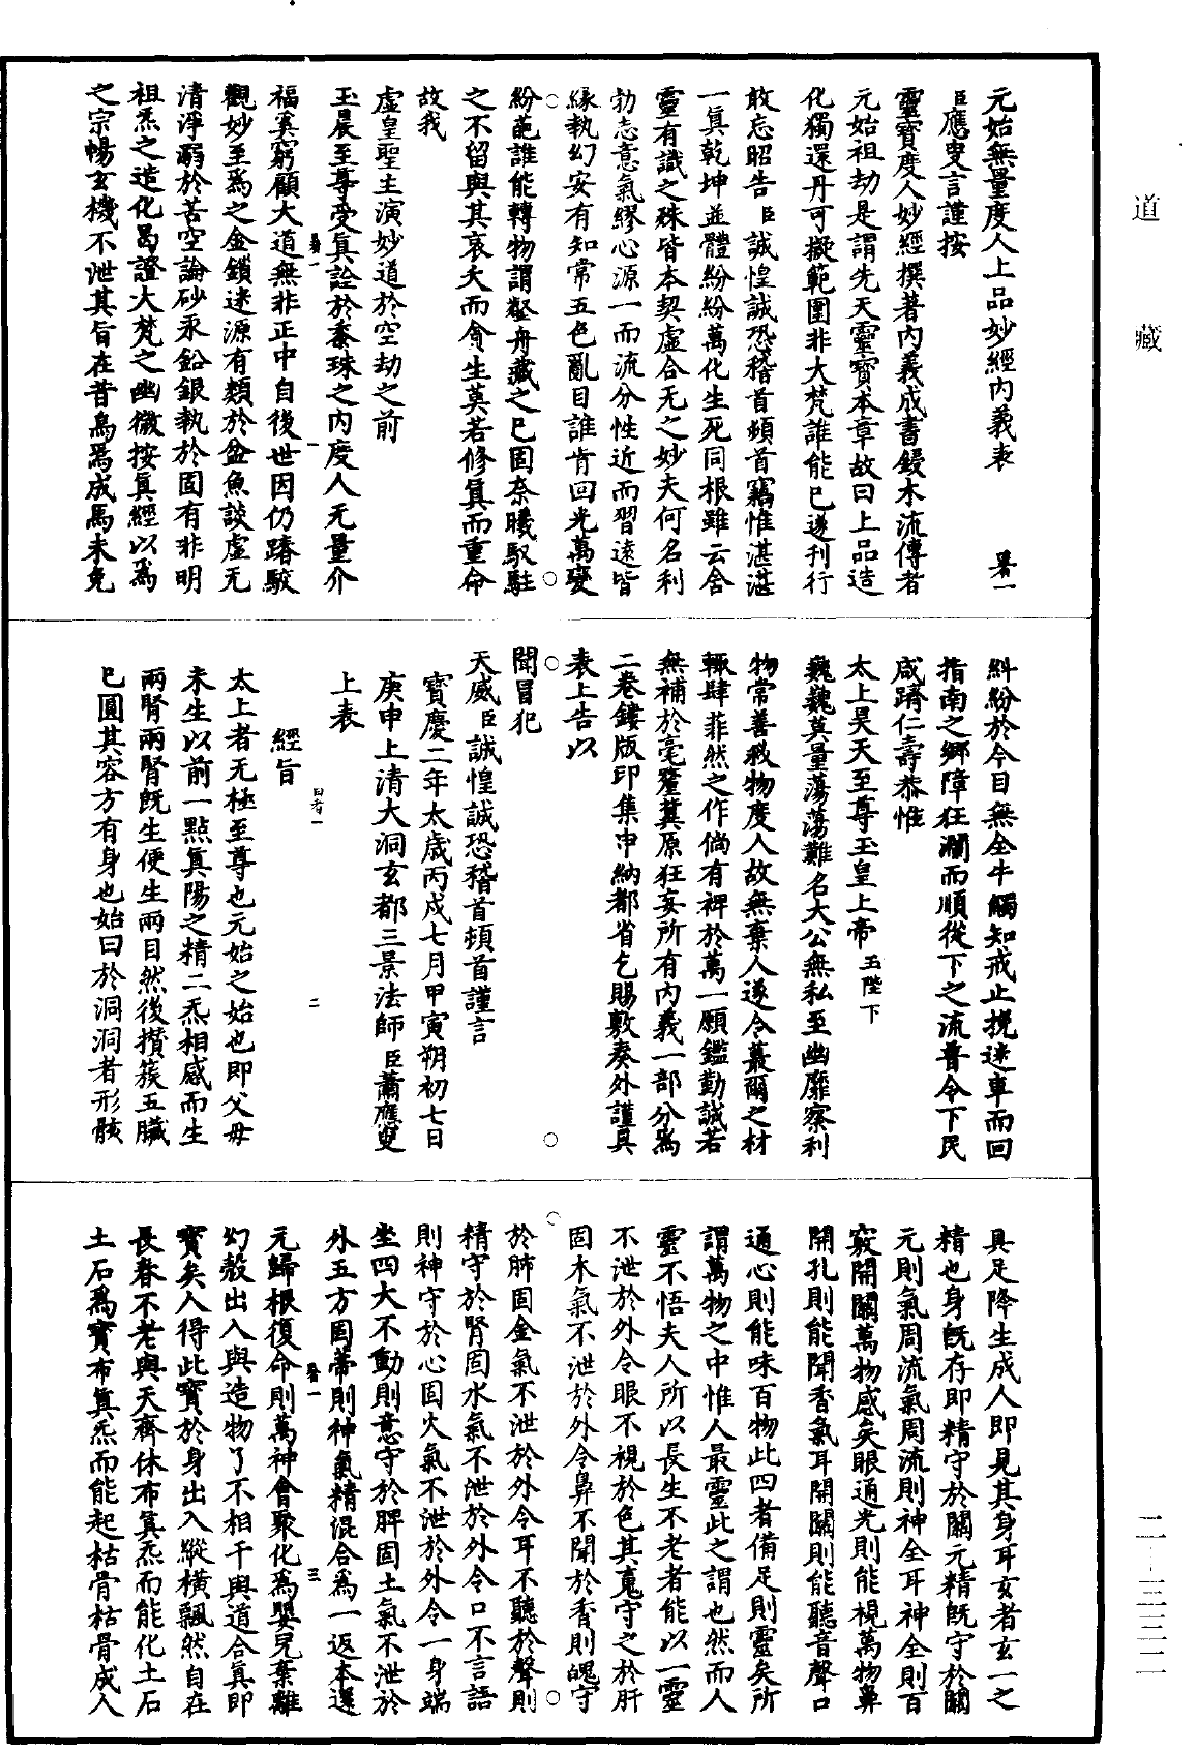 道藏
元始無量度人上品妙經內義表　暑一
臣應叟言謹按
靈寶度人妙經撰著內義成書鋟木流傳者
元始祖劫是謂先天靈寶本章故曰上品造
化獨還丹可擬範圍非大梵誰能已遂刊行
敢忘昭告臣誠惶誠恐稽首頓首竊惟湛湛
一真乾坤並體紛紛萬化生死同根雖云含
靈有識之殊皆本契虛合无之妙夫何名利
勃志意氣繆心源一而流分性近而習遠皆
緣執幻安有知常五色亂目誰肯回光萬變
紛葩誰能轉物謂壑舟藏之已固奈曦馭駐
之不留與其哀夭而貪生莫若修真而重命
故我
虛皇聖主演妙道於空劫之前
玉晨至尊受真詮於黍珠之內度人无量介
暑一
一
福奚窮顧大道無非正中自後世因仍踳駮
觀妙至爲之金鎖迷源有類於盆魚談虛无
清淨溺於苦空論砂汞鉛銀執於固有非明
祖炁之造化曷證大梵之幽微按真經以爲
之宗暢玄機不泄其旨在昔烏焉成馬未免
糾紛於今目無全牛觸知戒止挽迷車而回
指南之鄉障狂瀾而順從下之流普令下民
咸躋仁壽恭惟
太上昊天至尊玉皇上帝玉陛下
巍巍莫量蕩蕩難名大公無私至幽靡察利
物常善救物度人故無棄人遂令蕞爾之材
輒肆菲然之作倘有裨於萬一願鑑勤誠若
無補於毫釐冀原狂妄所有內義一部分爲
二卷鏤版印集申納都省乞賜敷奏外謹具
表上告以
聞冒犯
天威臣誠惶誠恐稽首頓首謹言
寶慶二年太歲丙戌七月甲寅朔初七日
庚申上清大洞玄都三景法師臣蕭應叟
上表
二
經旨
太上者无極至尊也元始之始也即父母
未生以前一點真陽之精二炁相感而生
兩腎兩腎既生便生兩目然後攢簇五臟
已圓其容方有身也始曰於洞洞者形骸
具足降生成人即見其身耳玄者玄一之
精也身既存即精守於關元精既守於關
元則氣周流氣周流則神全耳神全則百
竅開關萬物感矣眼通光則能視萬物鼻
開孔則能聞香氣耳開關則能聽音聲口
通心則能味百物此四者備足則靈矣所
謂萬物之中惟人最靈此之謂也然而人
靈不悟夫人所以長生不老者能以一靈
不泄於外令眼不視於色其䰟守之於肝
固木氣不泄於外令鼻不聞於香則魄守
於肺固金氣不泄於外令耳不聽於聲則
精守於腎固水氣不泄於外令口不言語
則神守於心固火氣不泄於外令一身端
坐四大不動則意守於脾固土氣不泄於
外五方固蒂則神氣精混合爲一返本還
暑一
三
元歸根復命則萬神會聚化爲嬰兒棄離
幻殼出入與造物了不相干與道合真即
寶矣人得此寶於身出入縱橫飄然自在
長春不老與天齊休布真炁而能化土石
土石爲寶布真炁而能起枯骨枯骨成人
二—三三二